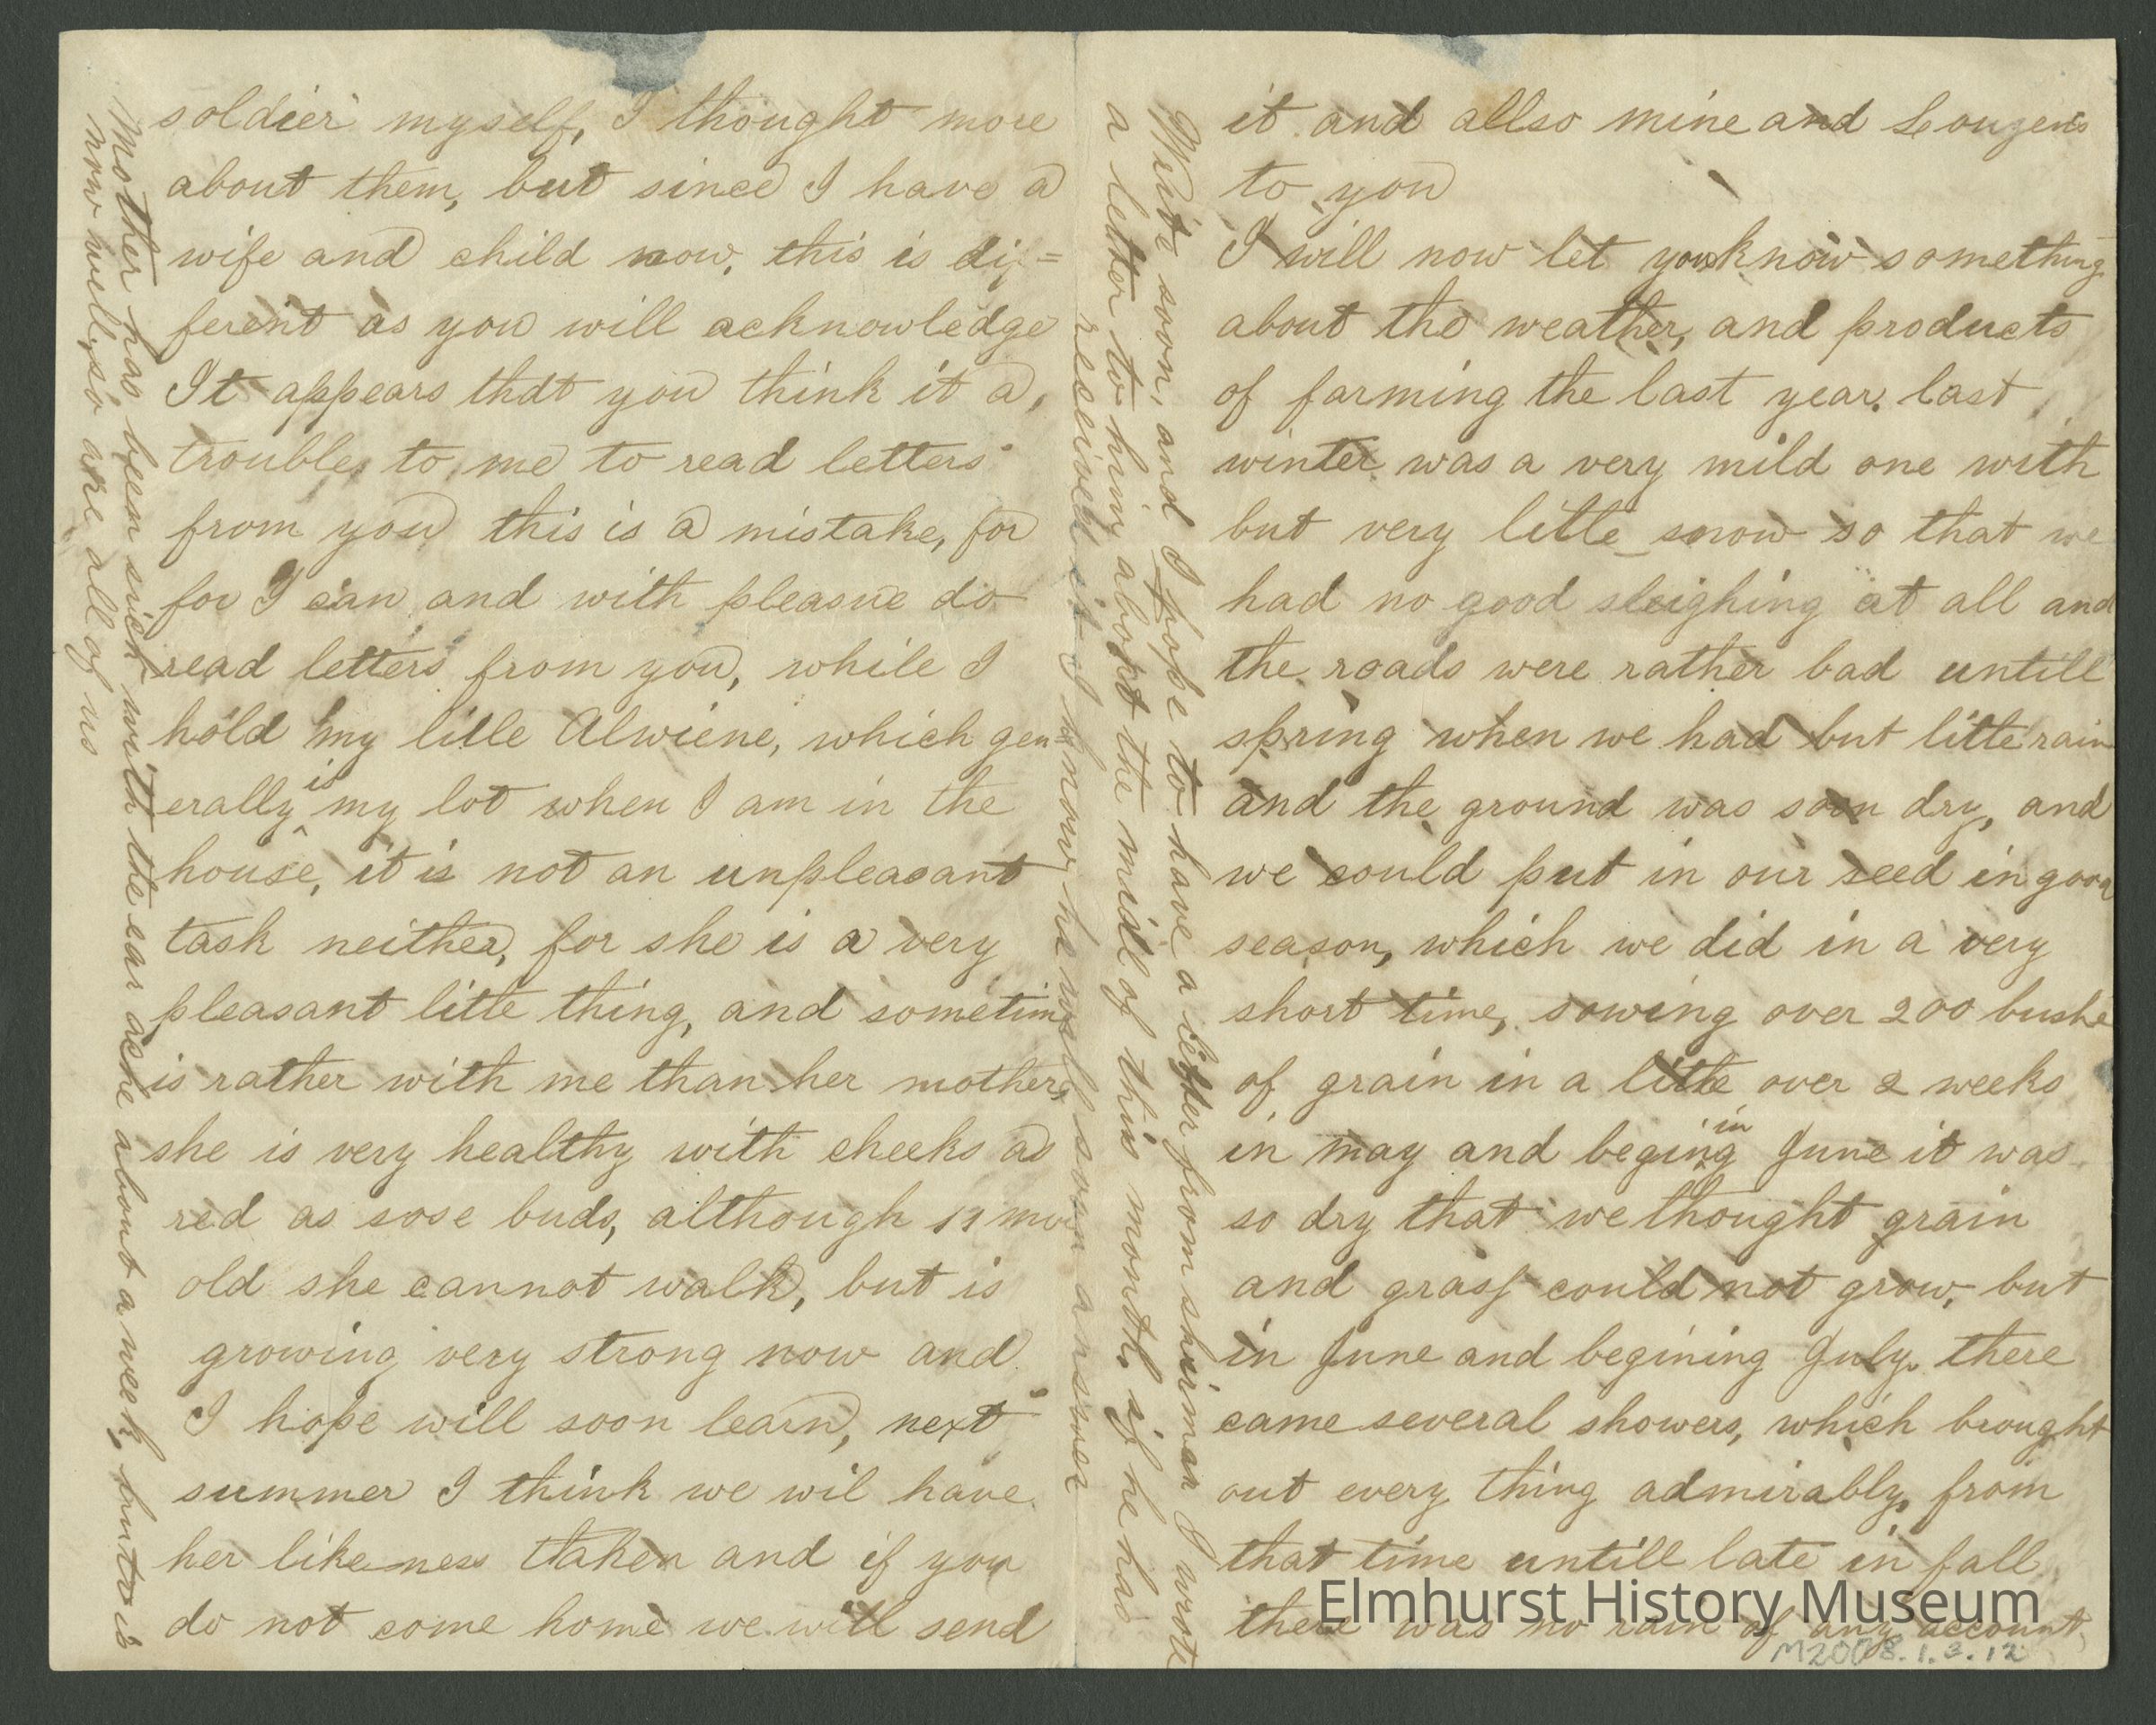 soldier myself, I thought more
about them, but since I have a
wife and child now, this is dif=
ferent as you will acknowledge
It appears that you think it a,
trouble, to me to read letters
from you this is a mistake, for
for I can and with pleasue do
read letters from you, while I
hold my litle Alwiene, which gen
erally is my lot when I am in the
house, it is not an unpleasant
task neither, for she is a very
pleasant litte thing, and sometim
is rather with me than her mother,
she is very healthy with cheeks as
red as sose buds, although 13 mo
old she cannot walk, but is
growing very strong now and
I hope will soon learn, next
summer I think we wil have
her likeness taken and if you
do not come home we will send
Mother has been sick with the ear ache about a week, but is
now well, so are all of us
it and allso mine and Lougens
to you
I will now let you know something
about the weather, and products
of farming the last year. last
winter was a very mild one with
but very litle snow so that we
had no good sleighing at all and
the roads were rather bad untill
spring when we had but litte rain
and the ground was soon dry, and
we could put in our seed in good
season, which we did in a very
short time, sowing over 200 bushe
of grain in a litte over 2 weeks
in may and begining in June it was
so dry that we thought grain
and grass could not grow, but
in June and begining July. there
came several showers, which brought
out every thing admirably, from
that time untill late in fall
there was no rain of any account
Write soon, and I hope to have a letter from shurman I wrote
a letter to him about the midl of this month. if he has
received it I know he will soon answer
Elmhurst History Museum
M2008.1.3.12